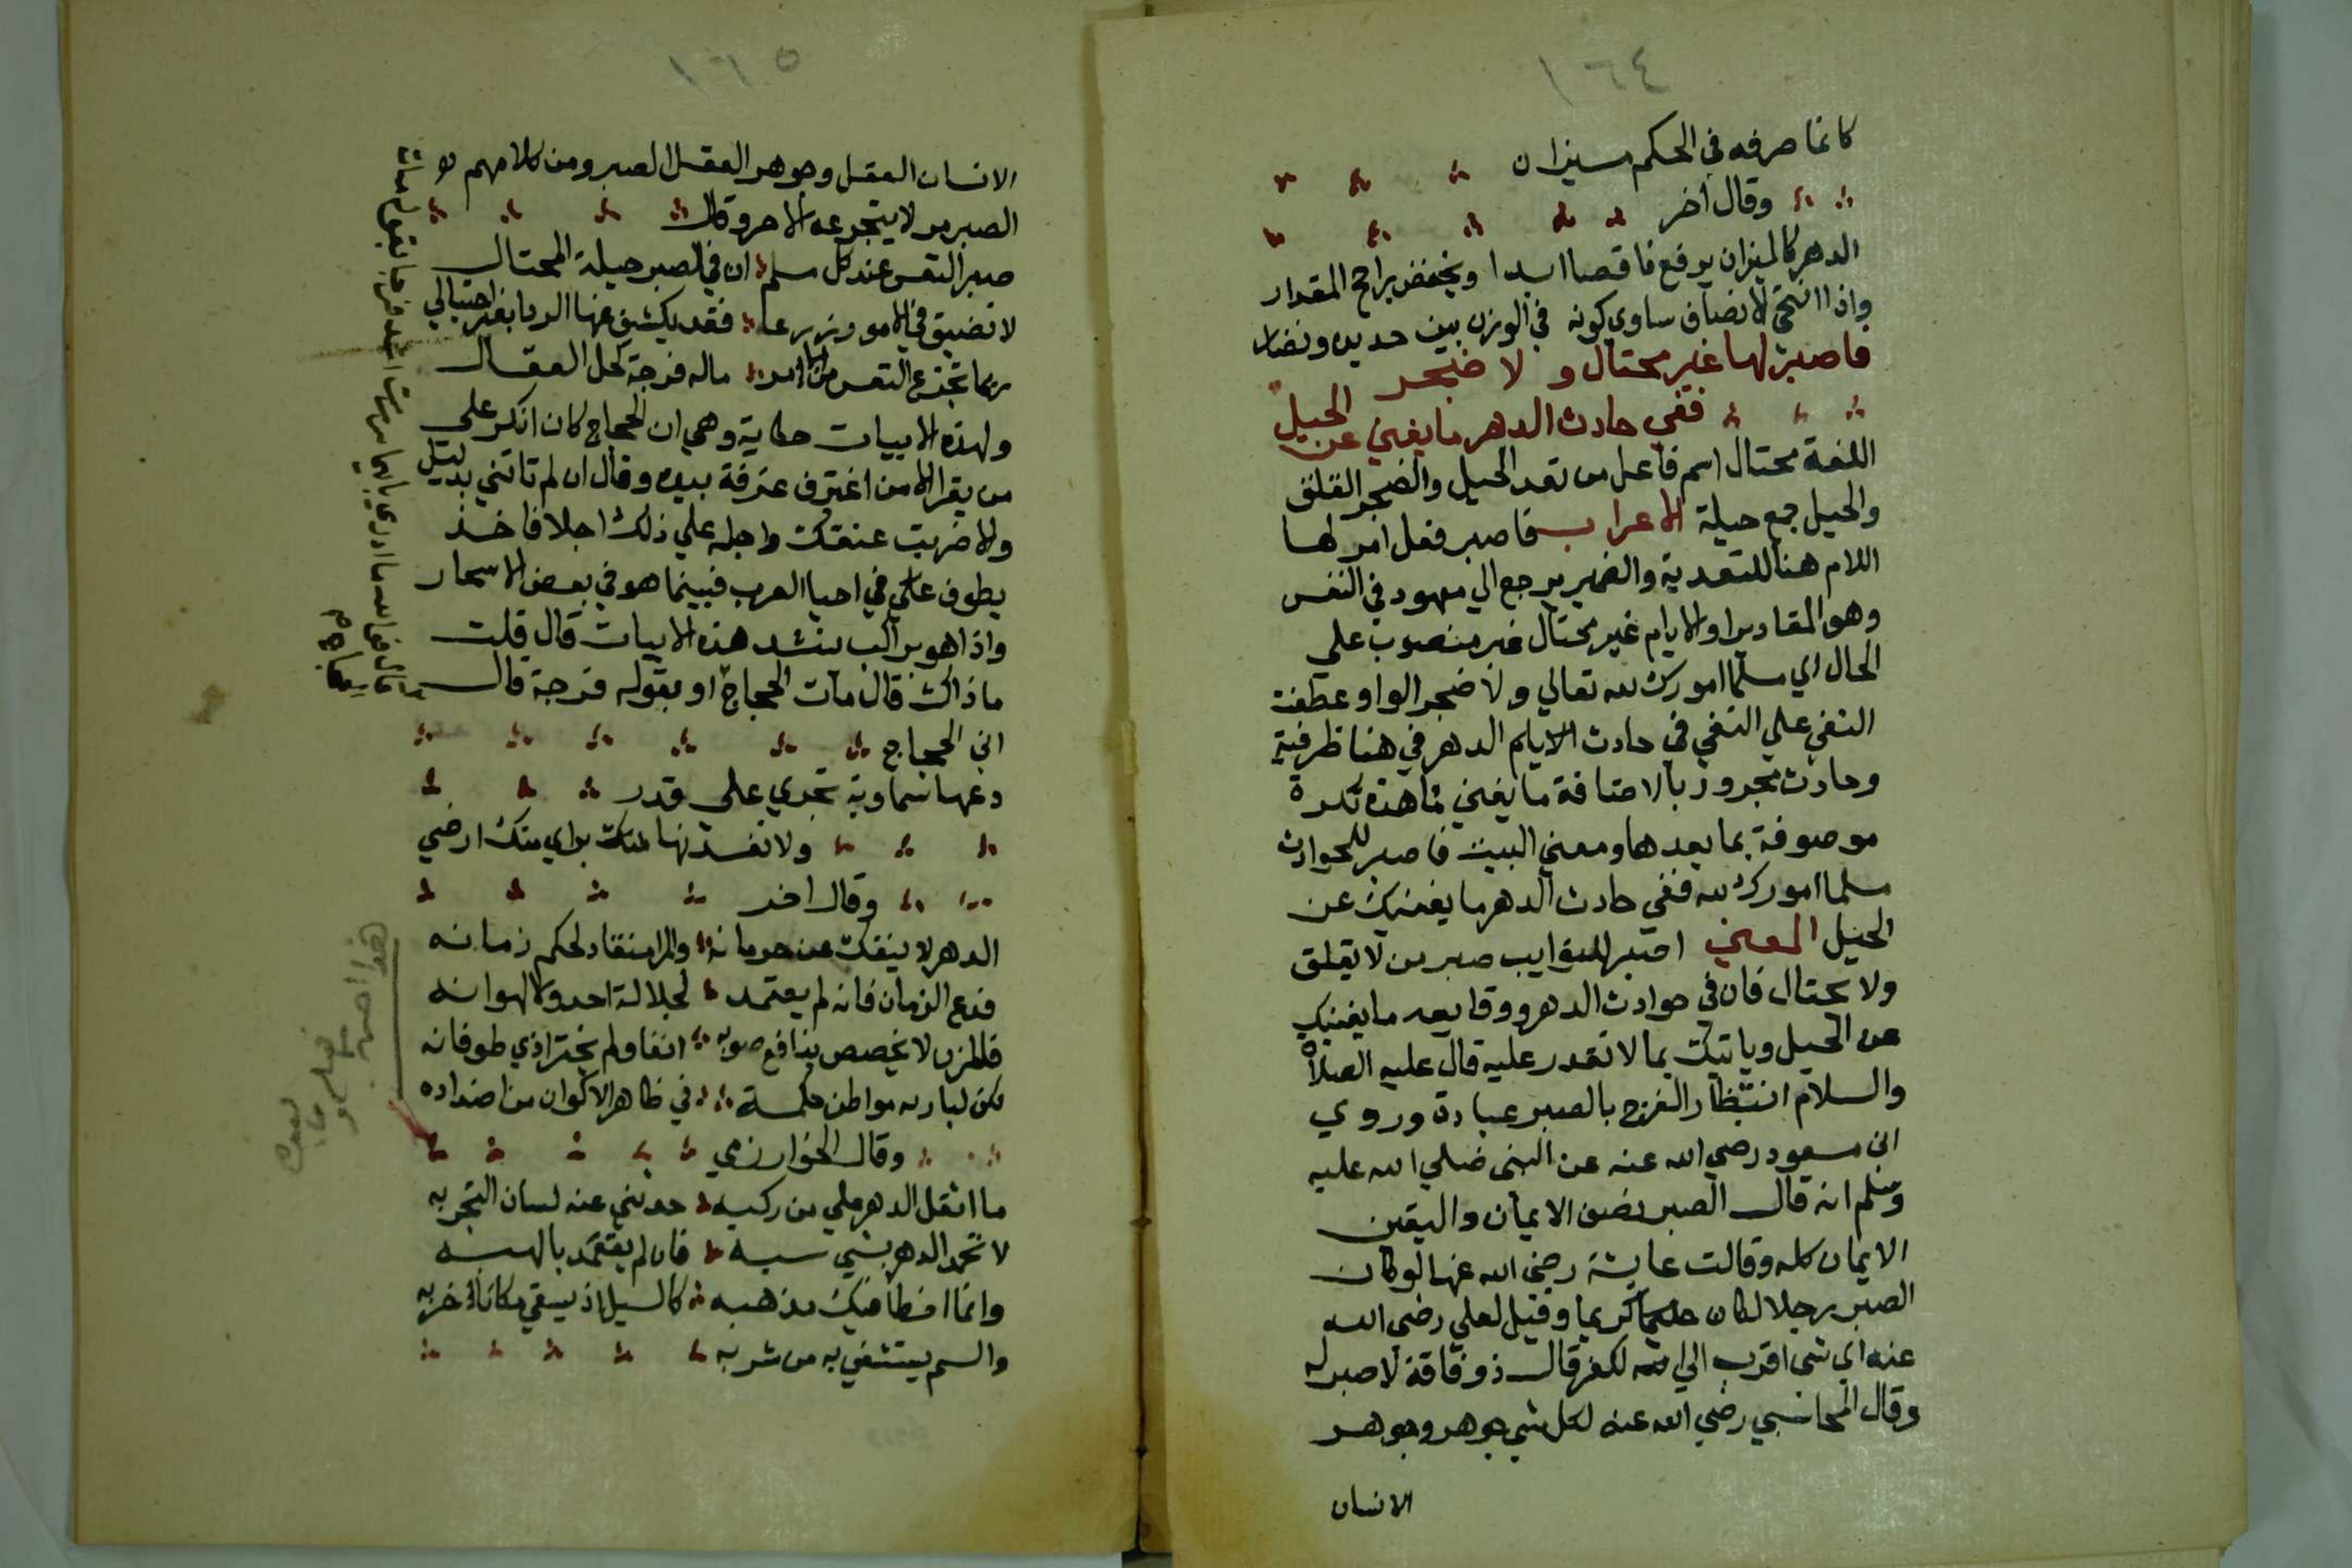 ١٦٤
كانما صرفه في الحكم ميزان
وقال اخر
الدهر كالميزان يرفع ناقصا ابدا ويخفض راجح المقدار
واذا انتحى الانصاف ساوى كونه في الوزن بين حديده ونضار
فاصبر لها غير محتال ولا ضجر
ففي حادث الدهر ما يغني عن الحيل
اللغة محتال اسم فاعل من تعد الحيل والضجر القلق
والحيل جمع حيلة الاعراب فاصبر فعل امر لها
اللام هنا للتعدية والضمير يرجع الي معهود في النفس
وهو المقادير او الايام غير محتال غير منصوب علي
الحال اي مسلما امورك لله تعالي ولا ضجر الواو عطفت
النفي علي النفي في حادث الايام الدهر في هنا ظرفية
وحادث مجرور بالاضافة ما يغني ما هذه نكرة
موصوفة بما بعدها ومعني البيت فاصبر للحوادث
مسلما امورك لله ففي حادث الدهر ما يغنيك عن
الحيل المعني اصبر للنوايب صبر من لا يقلق
ولا يحتال فان في حوادث الدهر ووقايعه ما يغنيك
عن الحيل وياتيك بما لا تقدر عليه قال عليه الصلاة
والسلام انتظار الفرج بالصبر عبادة وروي
ابن مسعود رضي الله عنه عن النبي صلي الله عليه
وسلم انه قال الصبر نصف الايمان واليقين
الايمان كله وقالت عايشة رضي الله عنها لو كان
الصبر رجلا لكان حليما كريما وقيل لعلي رضي الله
عنه اي شي اقرب الي الكفر قال ذو فاقة لا صبر له
وقال المحاسبي رضي الله عنه لكل شي جوهر وجوهر
الانسان
١٦٥
الانسان العقل وجوهر العقل الصبر ومن كلامهم
الصبر مر لا يتجرعه الا حر وقال
صبر النفس عند كل مسلم ان في الصبر حيلة المحتال
لا تضيق في الامور ذرعا فقد يكشف غمها الردا بغير احتيالي
ربما تجزع النفس من الامر ماله فرجة كحل العقال
ولهذه الابيات حكاية وهي ان الحجاج كان انكر علي
من يقرا الا من اغترف غرفة بيده وقال ان لم تاتني بدليل
والا ضربت عنقك واجله علي ذلك اجلا فاخذ
يطوف علي في احيا العرب فبينما هو في بعض الاسحار
واذا هو براكب ينشد هذه الابيات قال قلت
ما ذاك قال مات الحجاج او بقوله فرجة قال
ابن الحجاج
دعها سماوية تجري علي قدر
ولا تفسدنها منك براي منك ارضي
وقال اخر
الدهر لا ينفك عن حرمانه والمرا منقاد لحكم زمانه
فدع الزمان فانه لم يعتمد لجلالة احد ولا لهوانه
فالمزن لا يخصص بنافع صوبه انفا ولم يختر اذي طوفانه
لكن لباريه مواطن حكمة في ظاهر الاكوان من اضداده
وقال الخوارزمي
ما اثقل الدهر علي من ركبه حدثني عنه لسان التجربه
لا تحمد الدهر بشي سببه فان لم يعتمد بالهبه
وانما اخطا فيك مذهبه كالسيل اذ يسقي مكانا خربه
والسم يستشفي به من شربه